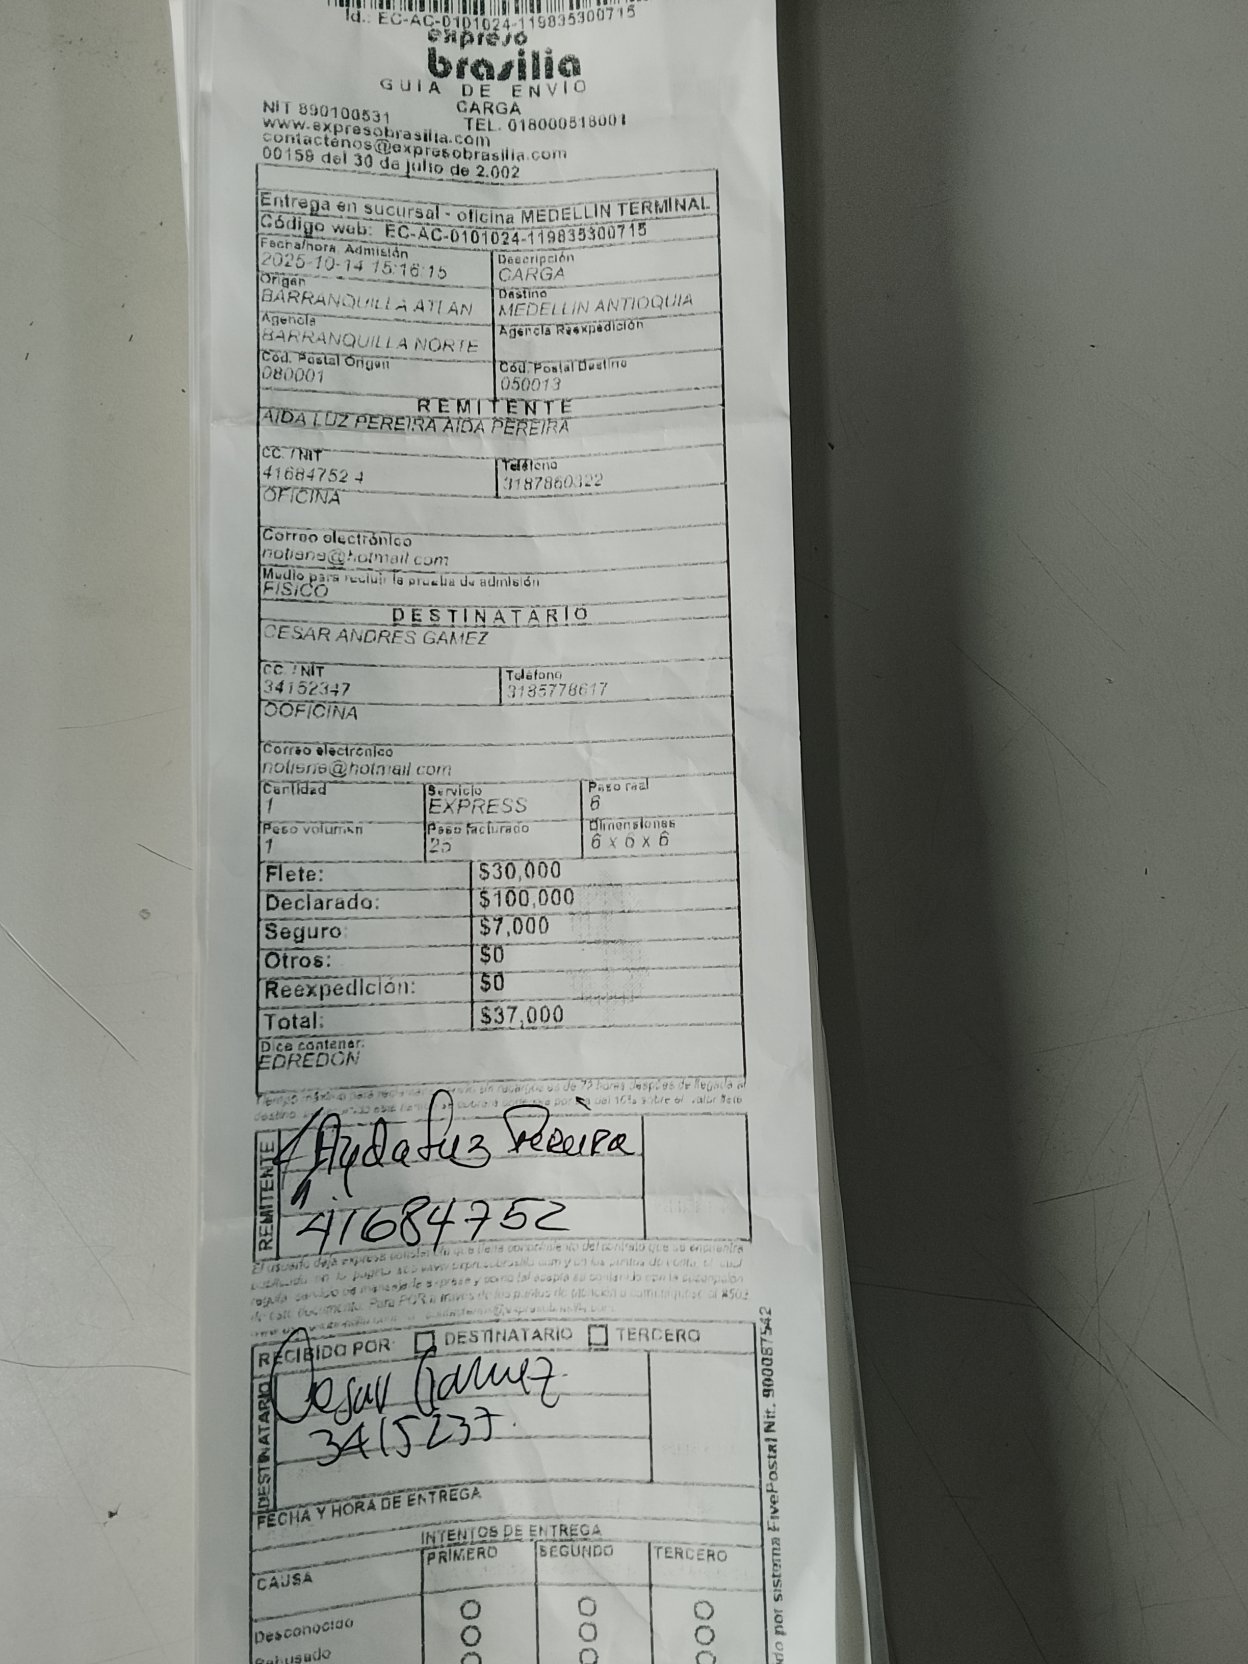 Id.: EC-AC-0101024-119835300715
expreso
brasilia
GUIA DE ENVIO
NIT 890100531 CARGA
www.expresobrasilia.com TEL. 018000518001
contactenos@expresobrasilia.com
00158 del 30 de julio de 2.002
Entrega en sucursal - oficina MEDELLIN TERMINAL
Código web: EC-AC-0101024-119835300715
Fecha/hora Admisión Descripción
2025-10-14 15:16:15 CARGA
Origen Destino
BARRANQUILLA ATLAN MEDELLIN ANTIOQUIA
Agencia Agencia Reexpedición
BARRANQUILLA NORTE
Cód. Postal Origen Cód. Postal Destino
080001 050013
REMITENTE
AIDA LUZ PEREIRA AIDA PEREIRA
CC. / NIT Teléfono
41684752 4 3187860322
OFICINA
Correo electrónico
notiene@hotmail.com
Medio para recibir la prueba de admisión
FISICO
DESTINATARIO
CESAR ANDRES GAMEZ
CC. / NIT Teléfono
34152347 3185778617
OOFICINA
Correo electrónico
notiene@hotmail.com
Cantidad Servicio Peso real
1 EXPRESS 8
Peso volumen Peso facturado Dimensiones
1 25 6 x 6 x 6
Flete: $30,000
Declarado: $100,000
Seguro: $7,000
Otros: $0
Reexpedición: $0
Total: $37,000
Dice contener:
EDREDON
horas después de llegada al
destino sobre el valor
REMITENTE
Ayda Luz Pereira
41684752
El usuario deja expresa constancia que tiene conocimiento del contrato que se encuentra
RECIBIDO POR: DESTINATARIO TERCERO
DESTINATARIO
Cesar Gamez
3415237
FECHA Y HORA DE ENTREGA
INTENTOS DE ENTREGA
CAUSA PRIMERO SEGUNDO TERCERO
Desconocido
Rehusado
do por sistema FivePostal Nit. 900087542